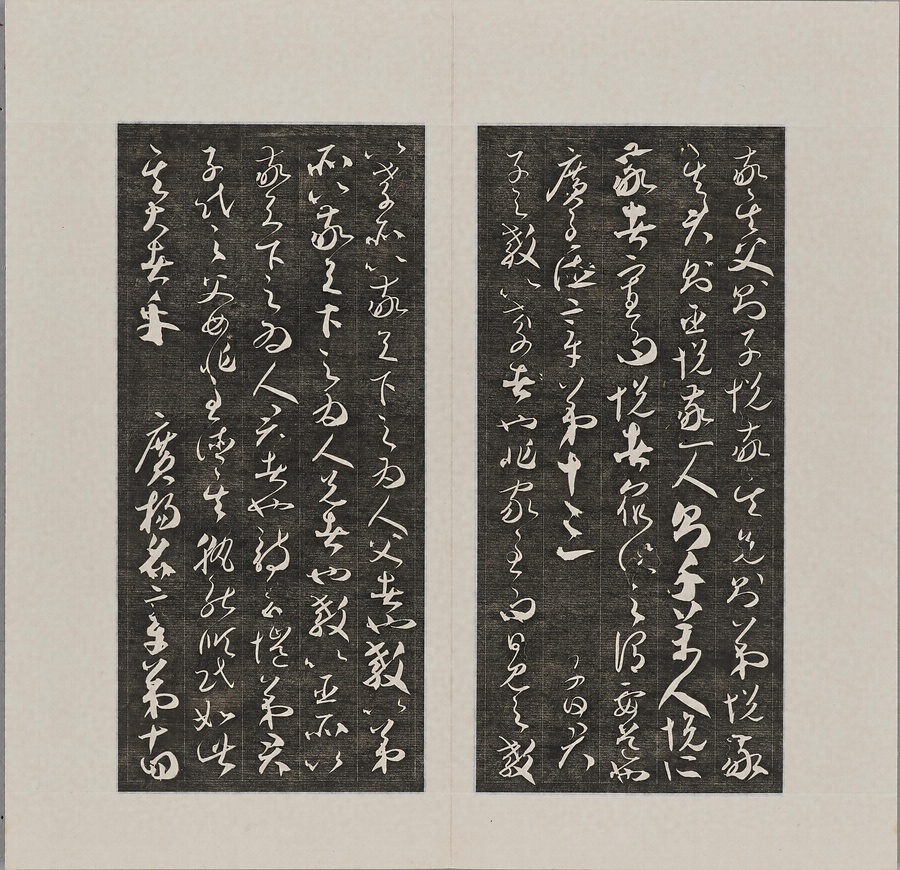 敬其父則子悅敬其兄則弟悅敬
其君則臣悅敬一人則千萬人悅所
敬者寡而悅者眾此之謂要道也
廣至德章第十三 子曰君
子之教以孝者也非家至而日見之教
以孝所以敬天下之為人父者也教以弟
所以敬天下之為人兄者也教以臣所以
敬天下之為人君者也詩云愷弟君
子民之父母非至德其孰能順民如此
其大者乎 廣揚名章第十四